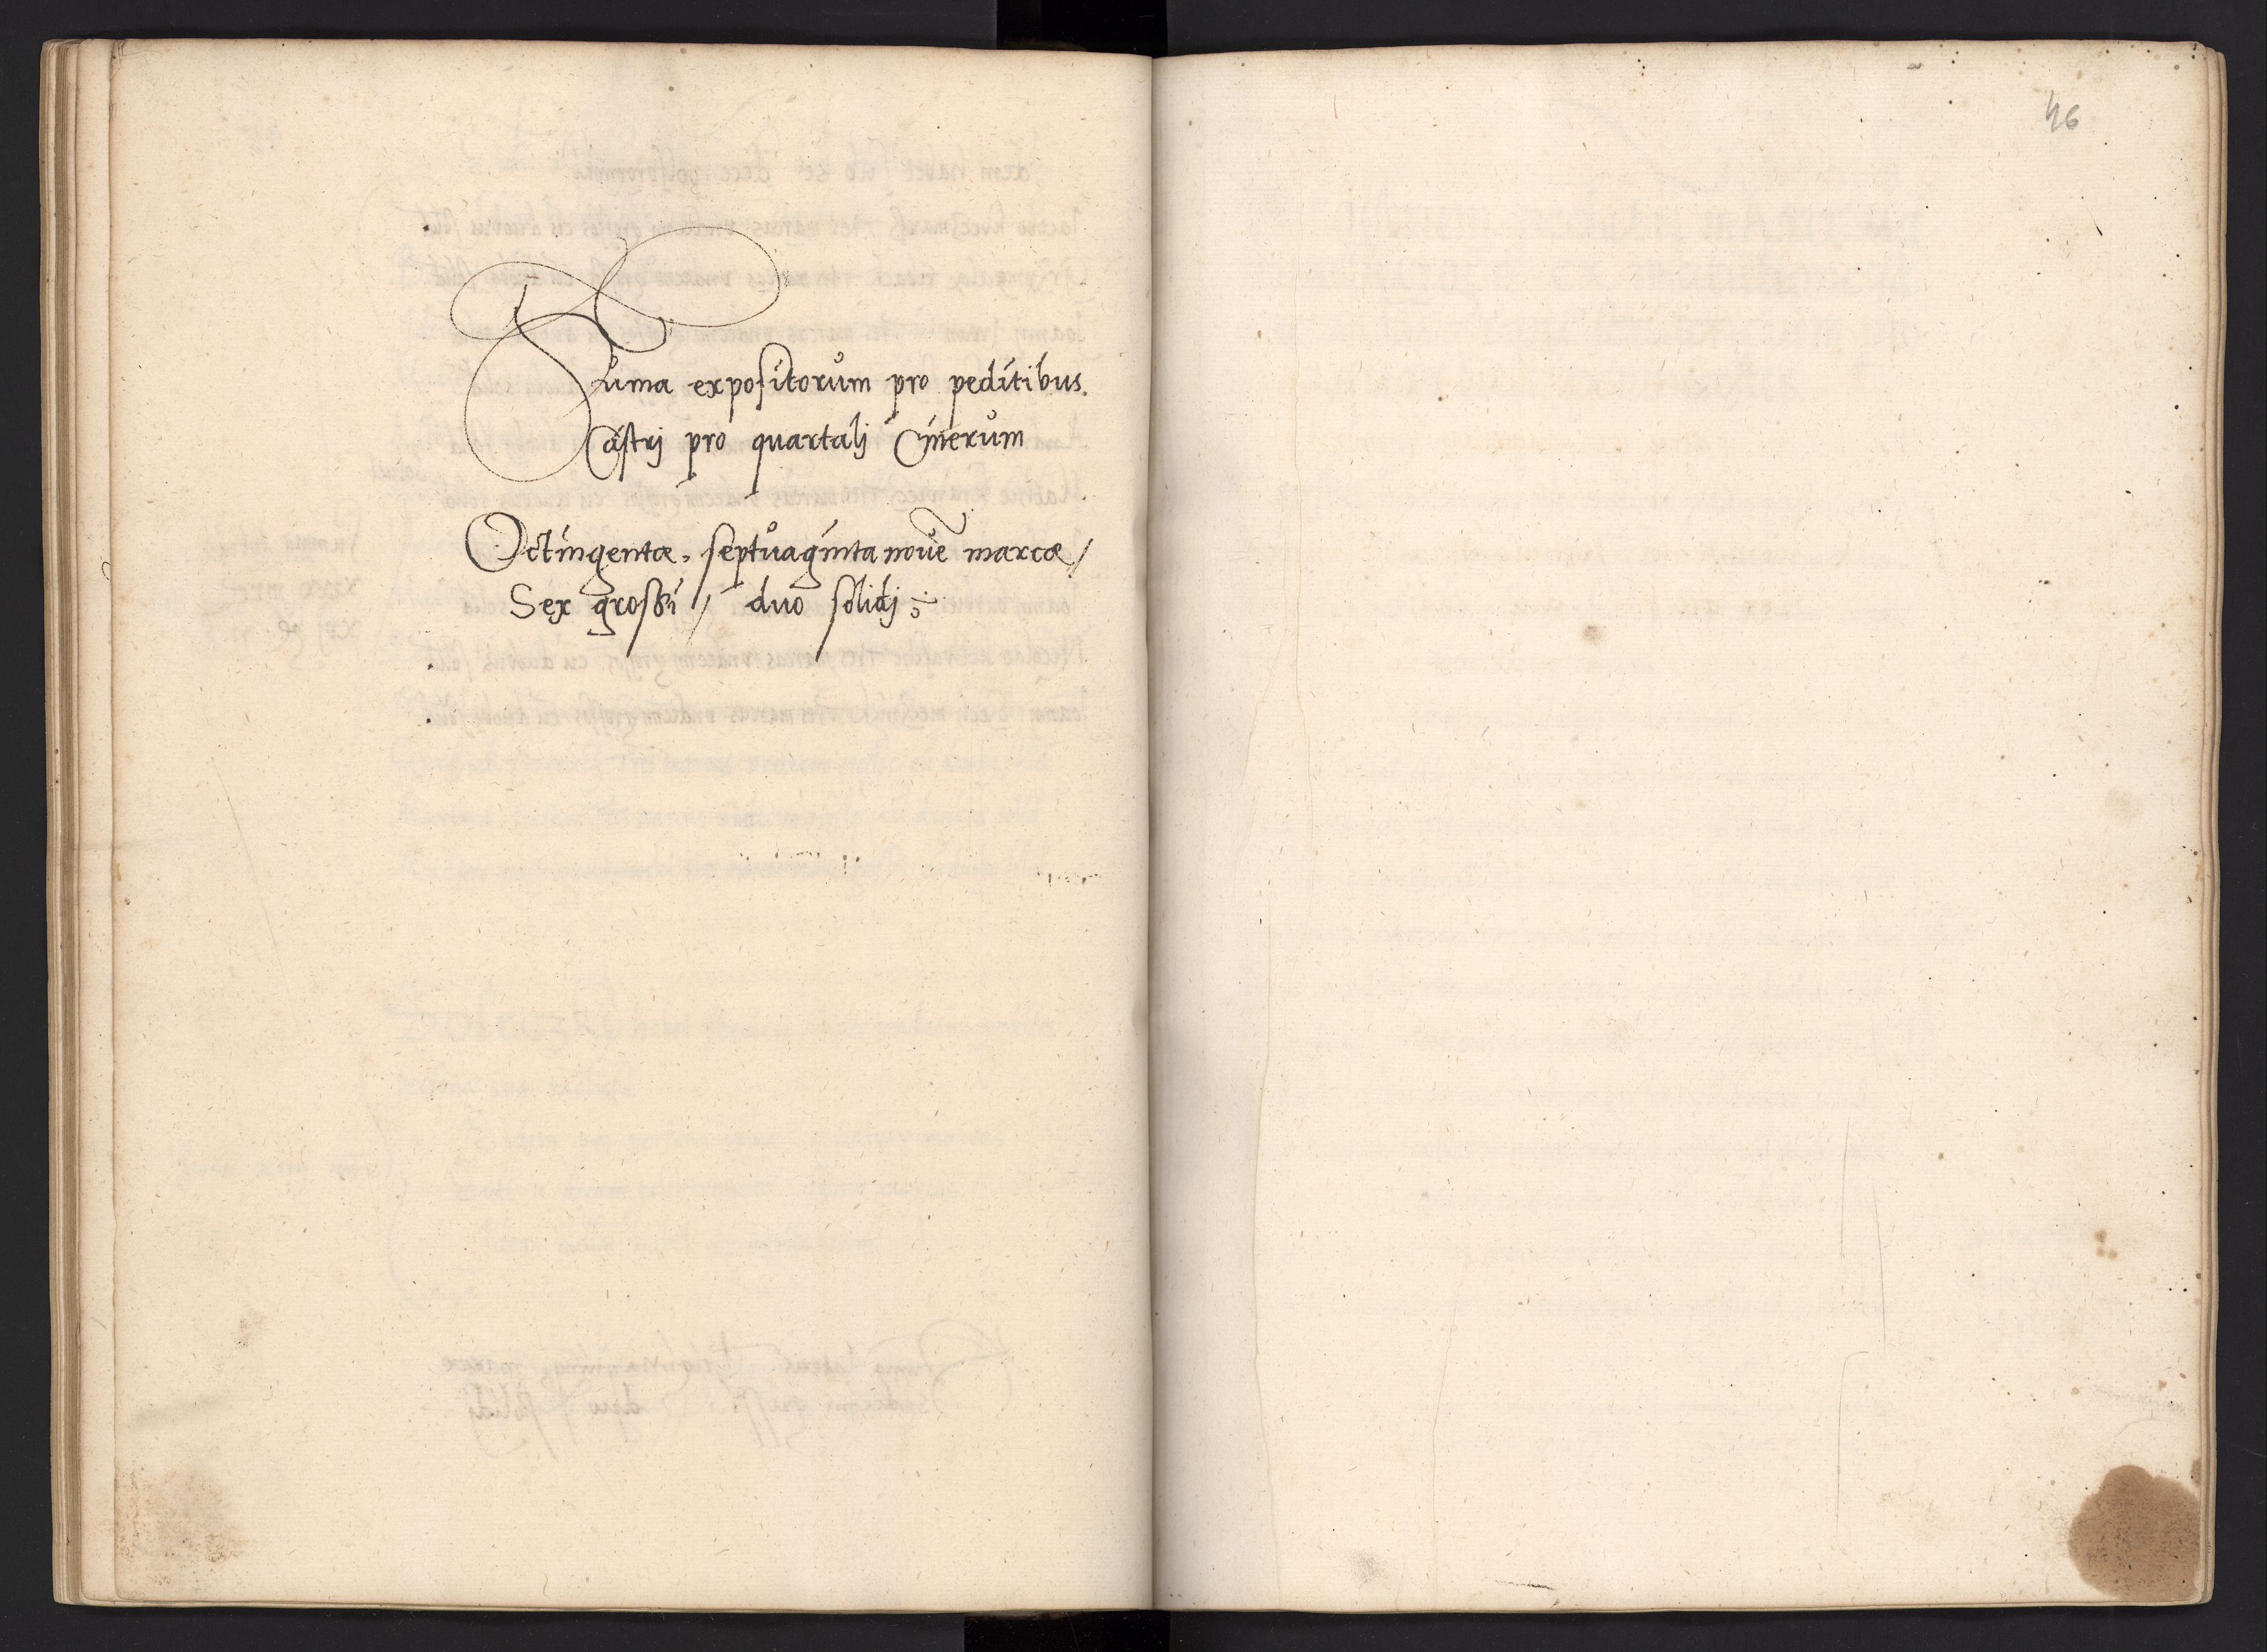 Suma expositorum pro peditibus
Castrj pro quartalj Cinerum
Octingentæ, septuaginta nouē marcæ /
Sex grossi / duo solidj
46